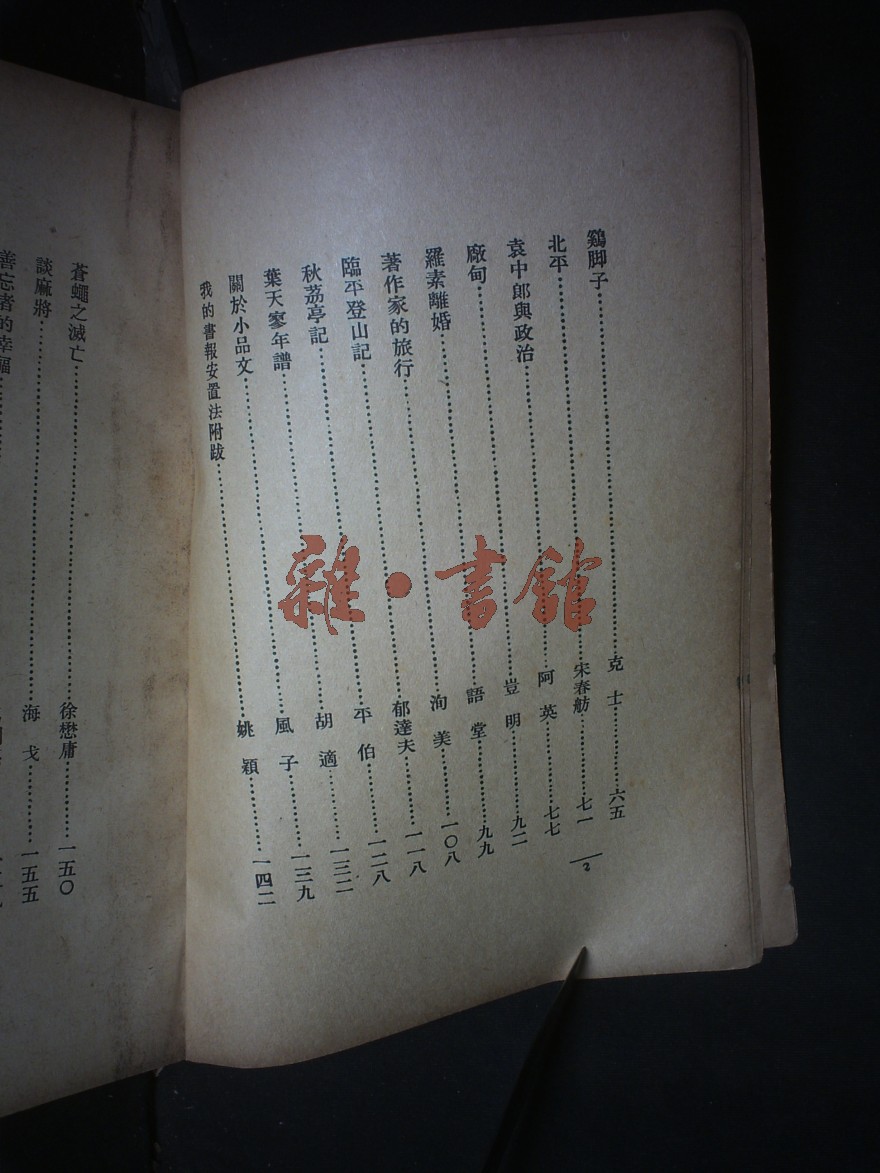 鷄脚子……克士……六五
北平……宋春舫……七一
袁中郎與政治……阿英……七七
廠甸……豈明……九二
羅素離婚……語堂……九九
著作家的旅行……洵美……一〇八
臨平登山記……郁達夫……一一八
秋荔亭記……平伯……一二八
葉天寥年譜……胡適……一三二
關於小品文……風子……一三九
我的書報安置法附跋……姚穎……一四二
2
蒼蠅之滅亡……徐懋庸……一五〇
談麻將……海戈……一五五
善忘者的幸福……
雜·書館